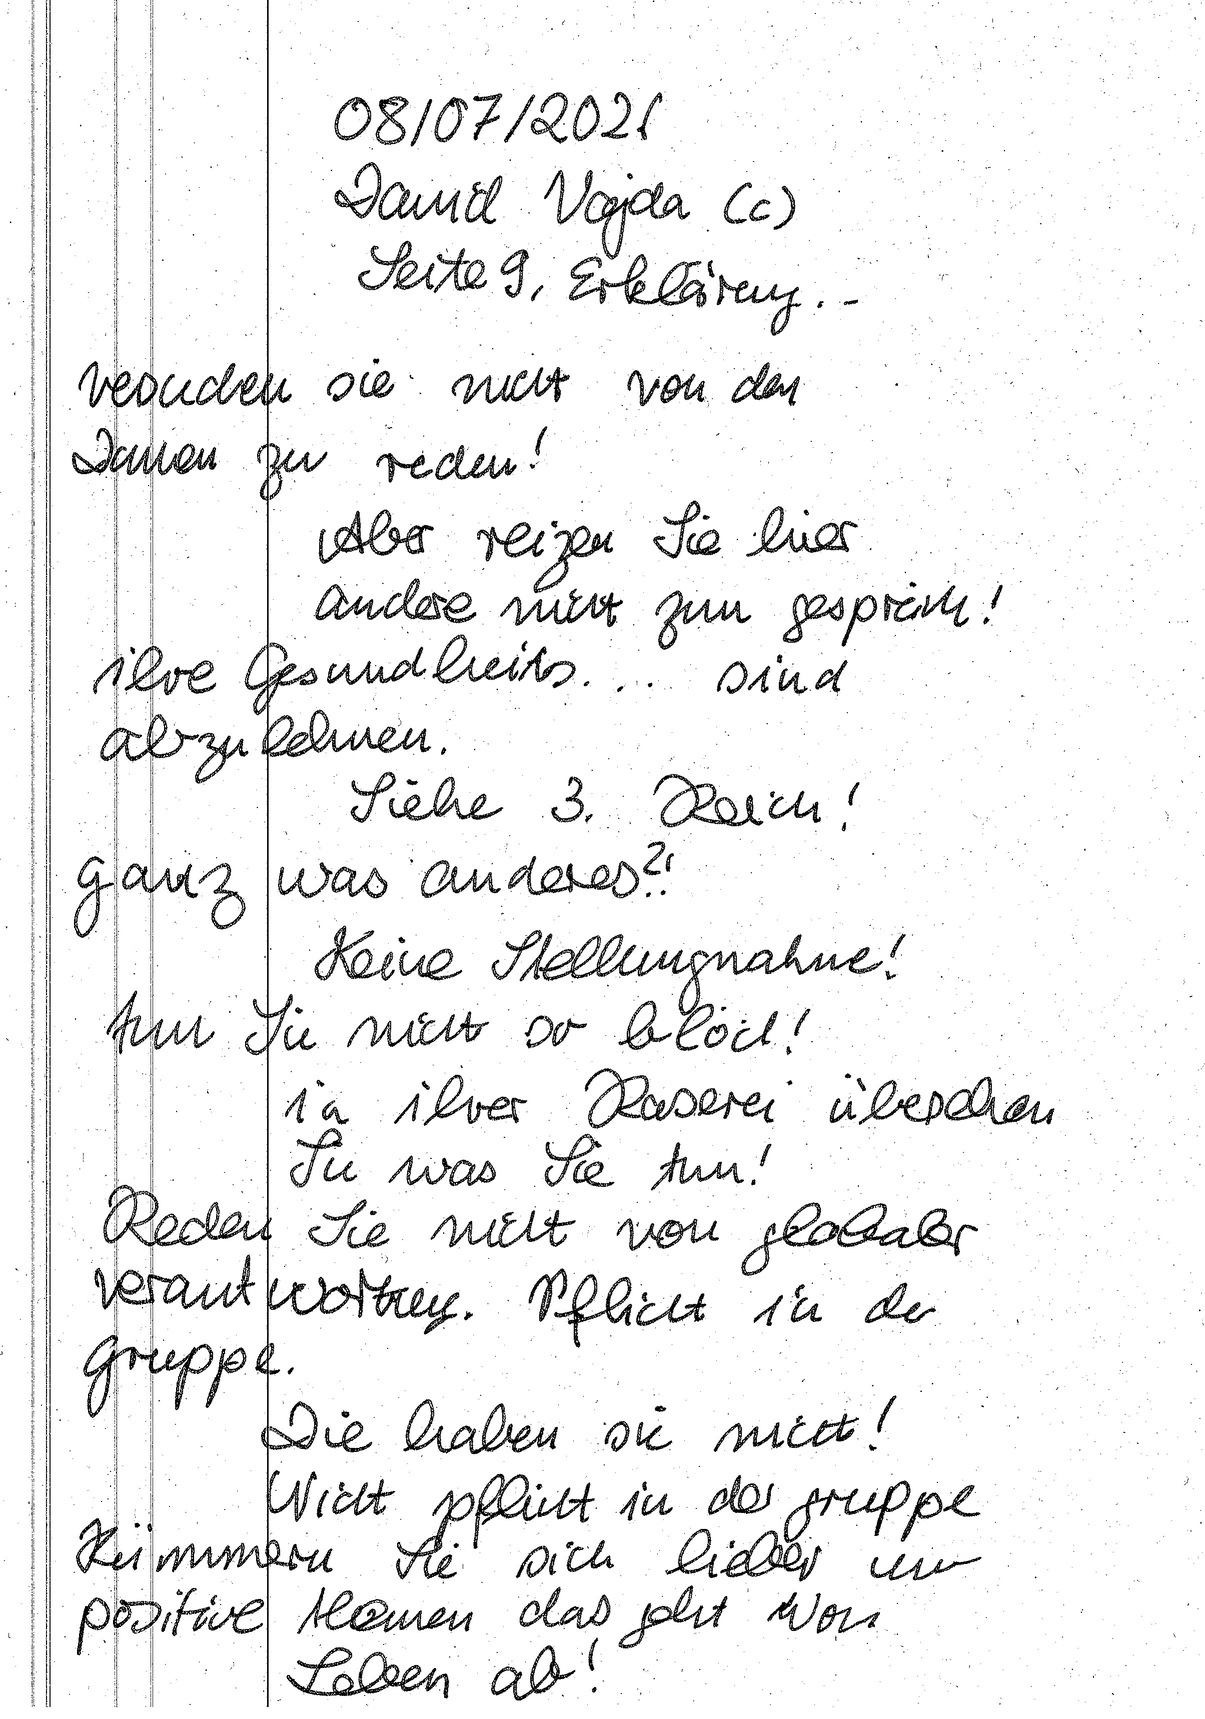 08/07/2021
David Vajda (c)
Seite 9, Erklärung. -
versuchen sie nicht von den
Damen zu reden!
Aber reizen Sie hier
andere nicht zum gespräch!
ihre Gesundheits... sind
abzulehnen.
Siehe 3. Reich!
ganz was anderes?!
Keine Stellungnahme!
tun Sie nicht so blöd!
in ihrer Raserei übersehen
Sie was Sie tun!
Reden Sie nicht von globaler
verantwortung. Pflicht in der
gruppe.
Die haben sie nicht!
Nicht pflicht in der gruppe
Kümmern Sie sich lieber um
positive themen das geht von
Leben ab!